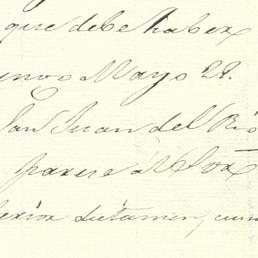 que debe haber
Mayo 28.
San Juan del Río
parese al Sor
dictamen, cum